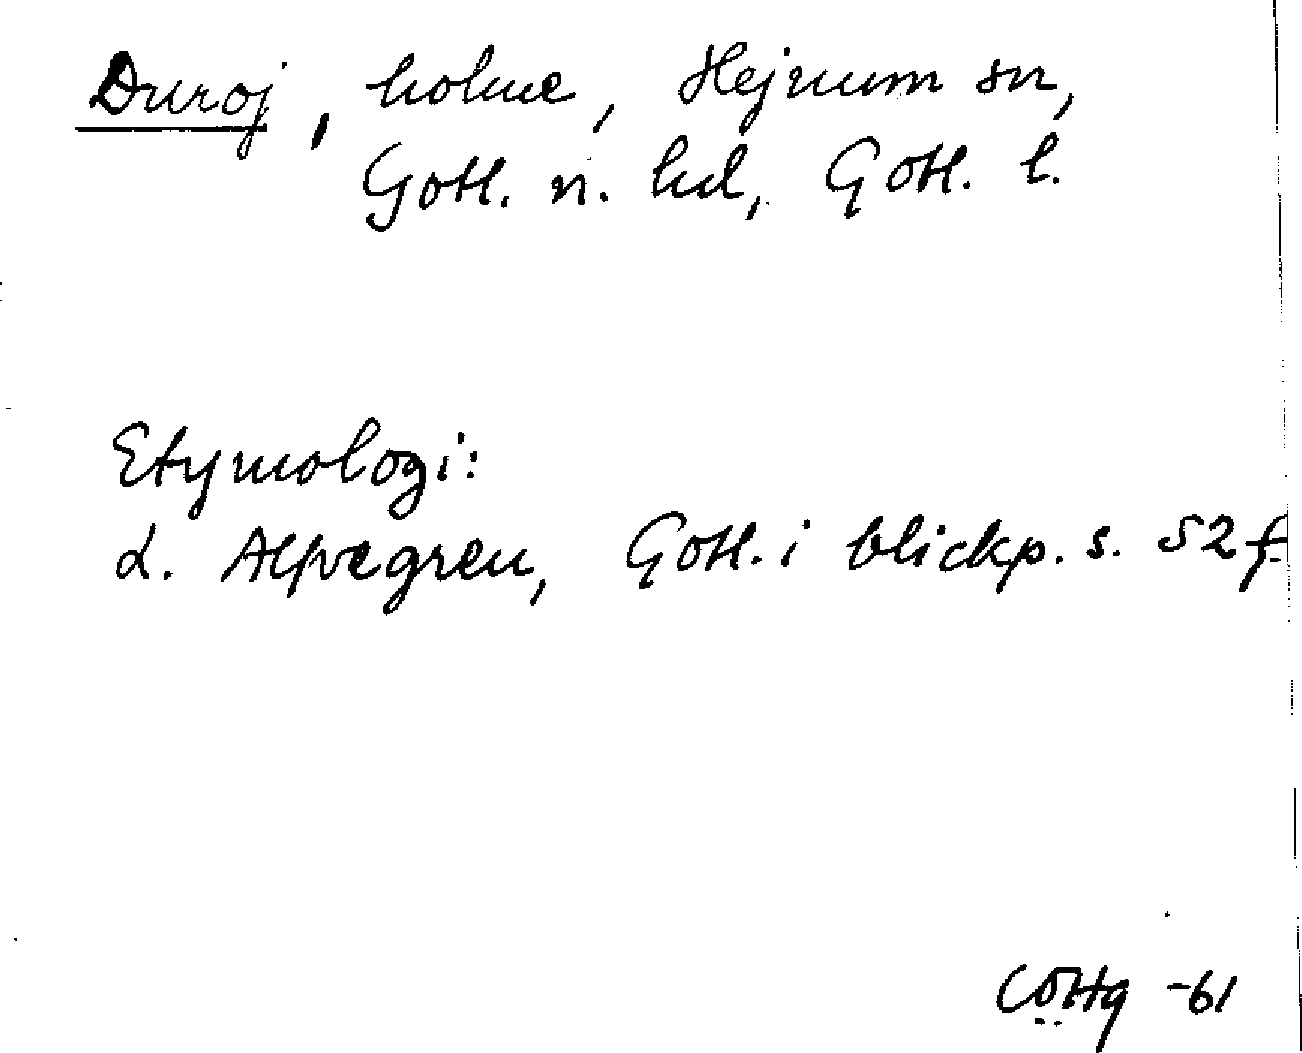 Duroj, holme, Hejnum sn,
Gotl. n. hd, Gotl. l.
Etymologi:
L. Alfvegren, Gotl. i blickp. s. 52 f.
-61